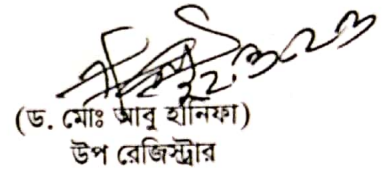 (ড. মোঃ আবু হানিফা)
উপ রেজিস্ট্রার